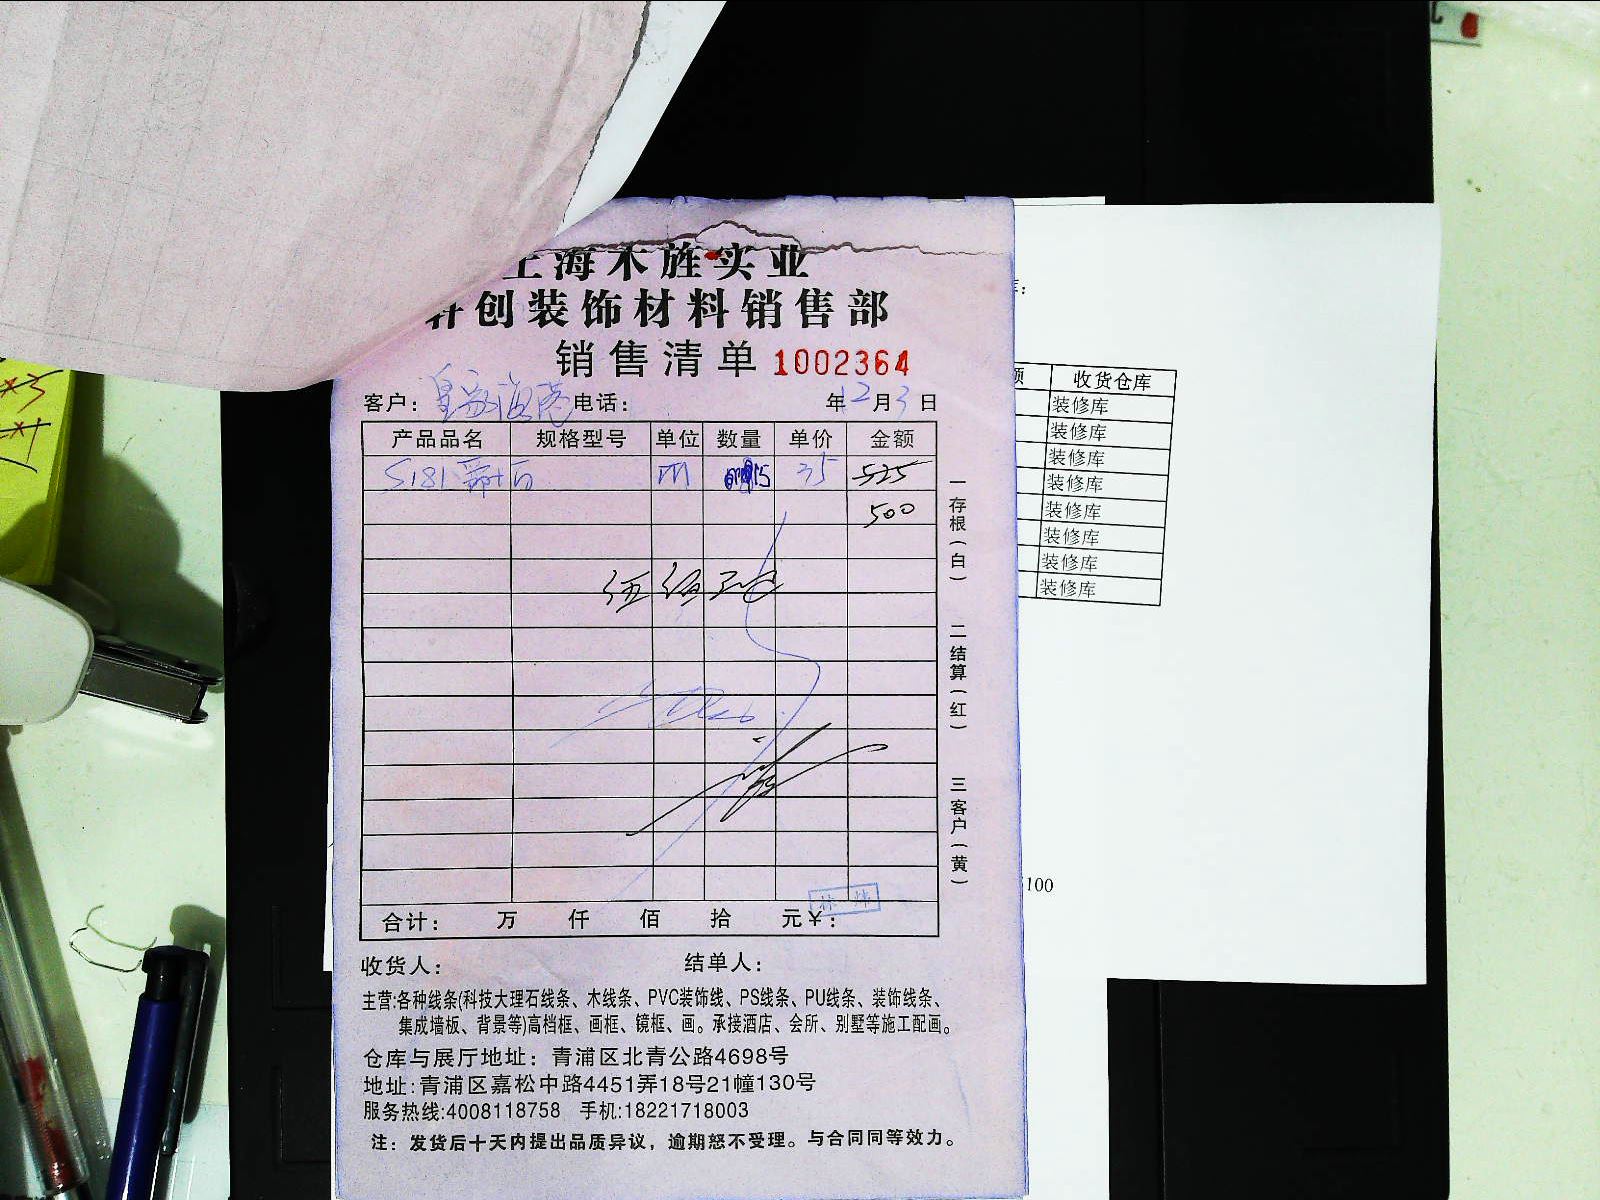 上海木旌实业
轩创装饰材料销售部
销售清单 1002364
客户：皇家 电话： 年12月3日
产品品名 规格型号 单位 数量 单价 金额
S181 m 15 35 525
500
伍佰
合计： 万 仟 佰 拾 元￥：
收货人： 结单人：
主营:各种线条(科技大理石线条、木线条、PVC装饰线、PS线条、PU线条、装饰线条、
集成墙板、背景等)高档框、画框、镜框、画。承接酒店、会所、别墅等施工配画。
仓库与展厅地址：青浦区北青公路4698号
地址:青浦区嘉松中路4451弄18号21幢130号
服务热线:4008118758 手机:18221718003
注：发货后十天内提出品质异议，逾期恕不受理。与合同同等效力。
一存根(白) 二结算(红) 三客户(黄)
额 收货仓库
装修库
装修库
装修库
装修库
装修库
装修库
装修库
装修库
100